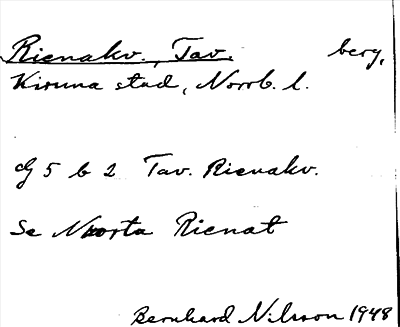 Rienakv., Tav. berg,
Kiruna stad, Norrb. l.
dg 5 b 2 Tav. Rienakv.
Se Nuorta Rienat
Bernhard Nilsson 1948